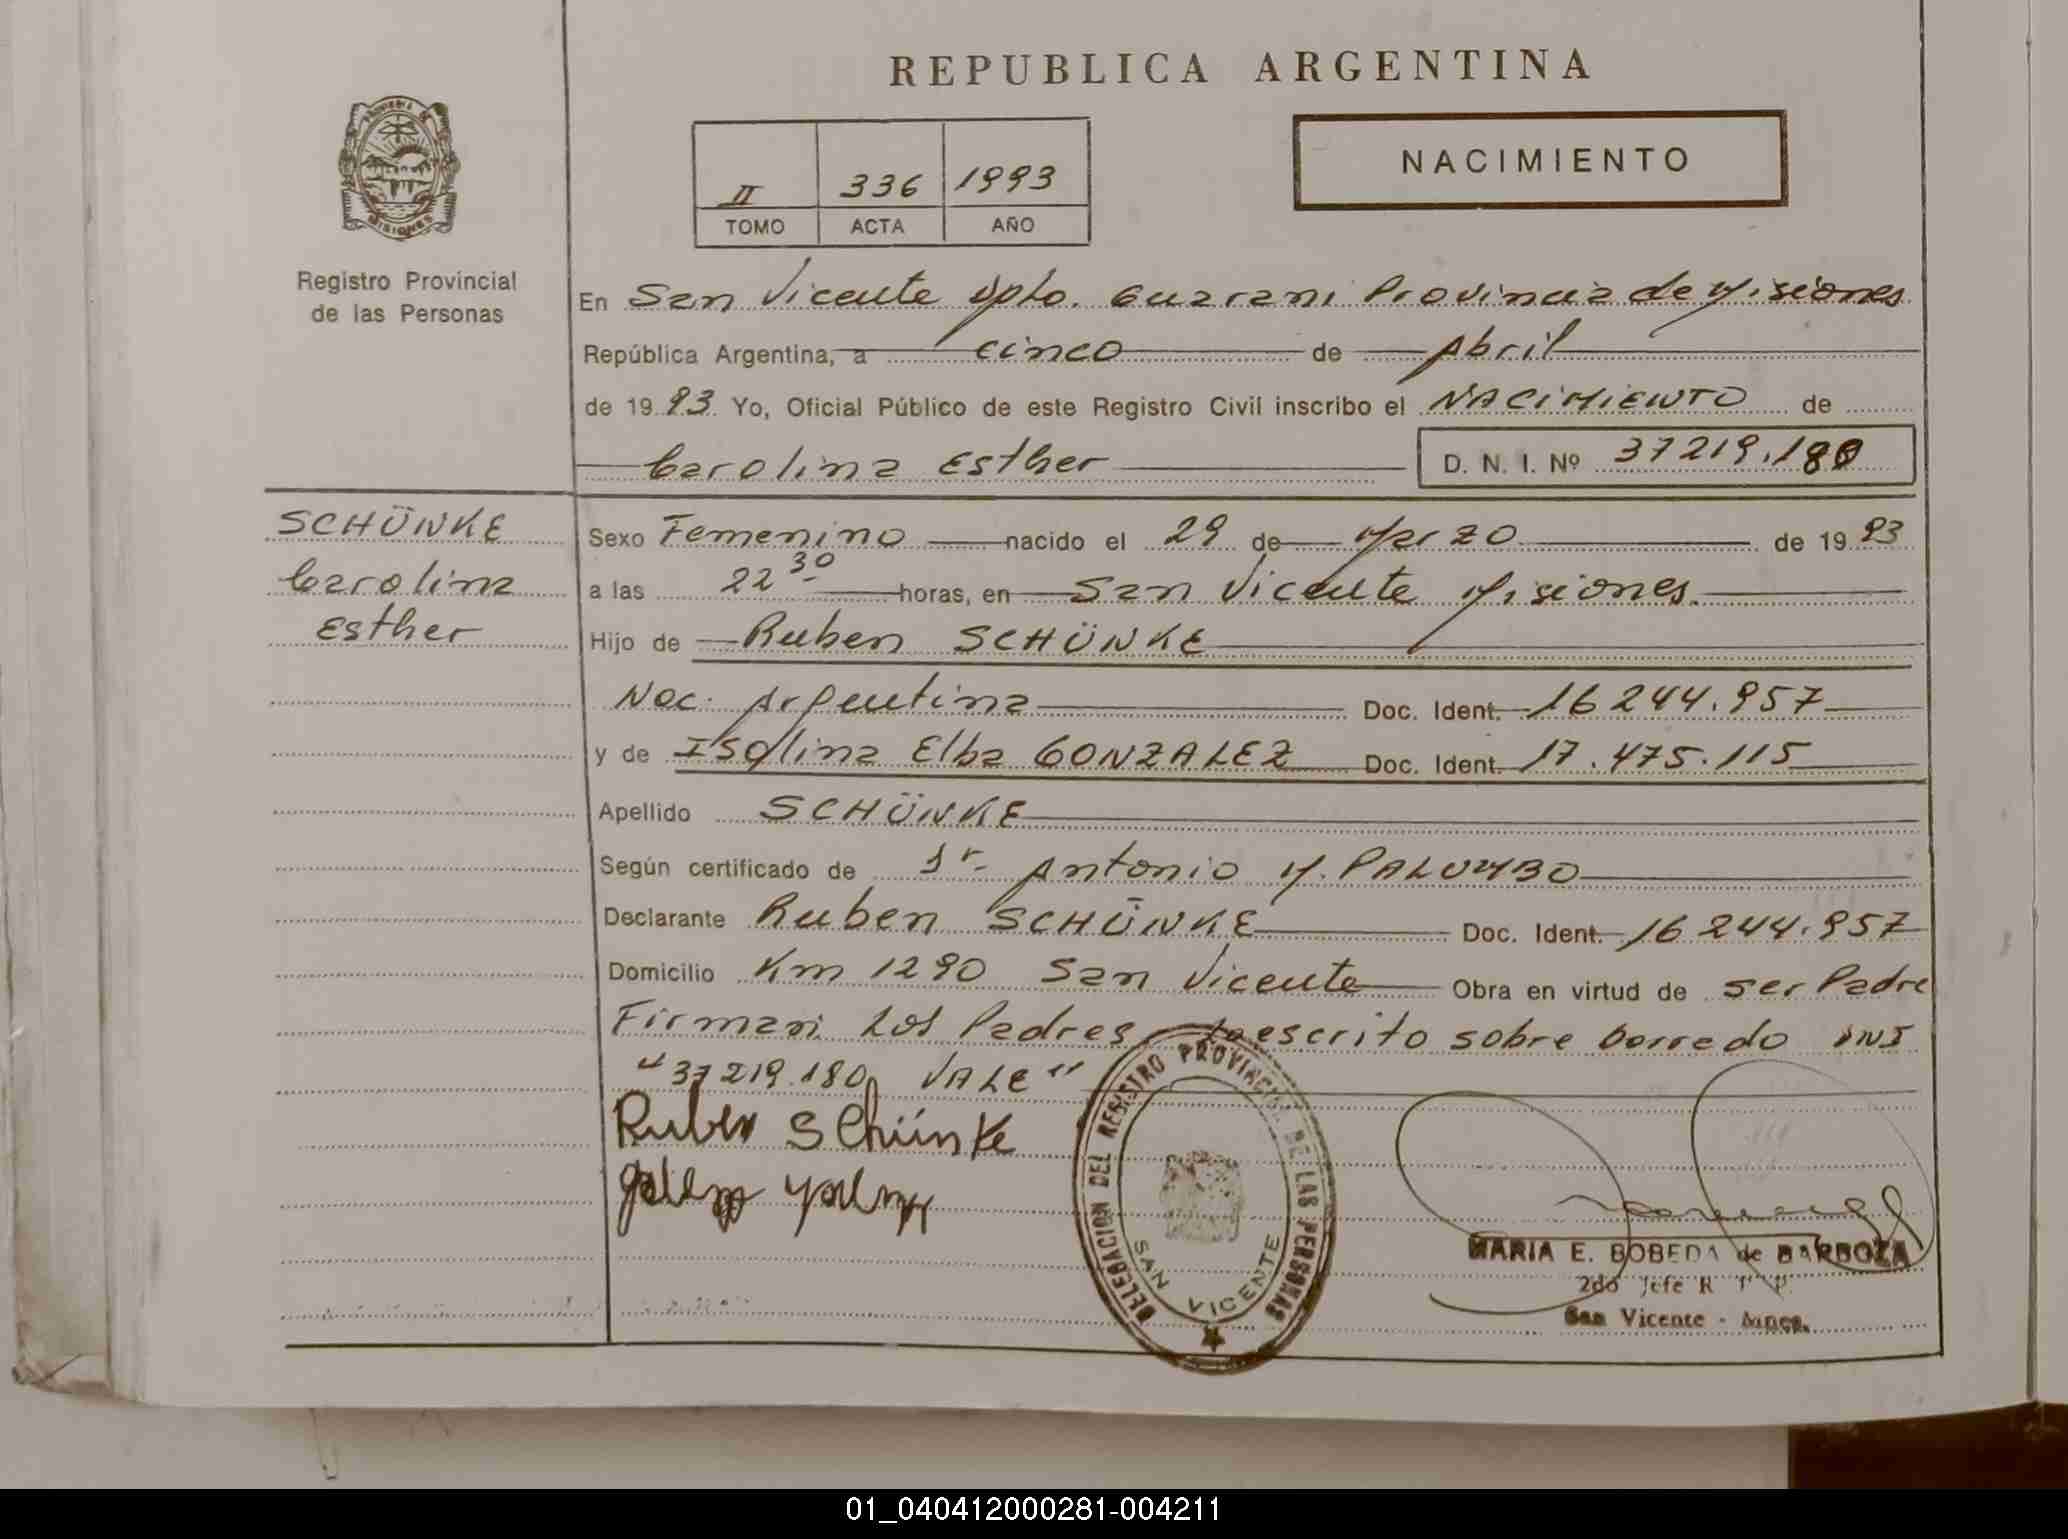 REPUBLICA ARGENTINA
NACIMIENTO
II 336 1993
TOMO ACTA AÑO
Registro Provincial
de las Personas
En San Vicente Dpto. Guarani Provincia de Misiones
República Argentina, a cinco de Abril
de 1993 Yo, Oficial Público de este Registro Civil inscribo el NACIMIENTO de
Carolina Esther D. N. I. Nº 37219.180
SCHÜNKE
Carolina
Esther
Sexo Femenino nacido el 29 de Marzo de 1993
a las 22 30 horas, en San Vicente Misiones.
Hijo de Ruben SCHÜNKE
Nac. Argentina Doc. Ident. 16244.957
y de Isolina Elba GONZALEZ Doc. Ident. 17.475.115
Apellido SCHÜNKE
Según certificado de Antonio M. PALUMBO
Declarante Ruben SCHÜNKE Doc. Ident. 16244.957
Domicilio Km 1290 San Vicente Obra en virtud de ser Padre
Firman Los Padres, Lo escrito sobre borrado DNI
"37219.180 VALE"
Ruben SChünke
DELEGACION DEL REGISTRO PROVINCIAL DE LAS PERSONAS
SAN VICENTE
MARIA E. BOBEDA de BARBOZA
2do Jefe R P
San Vicente - Mnes.
01_040412000281-004211